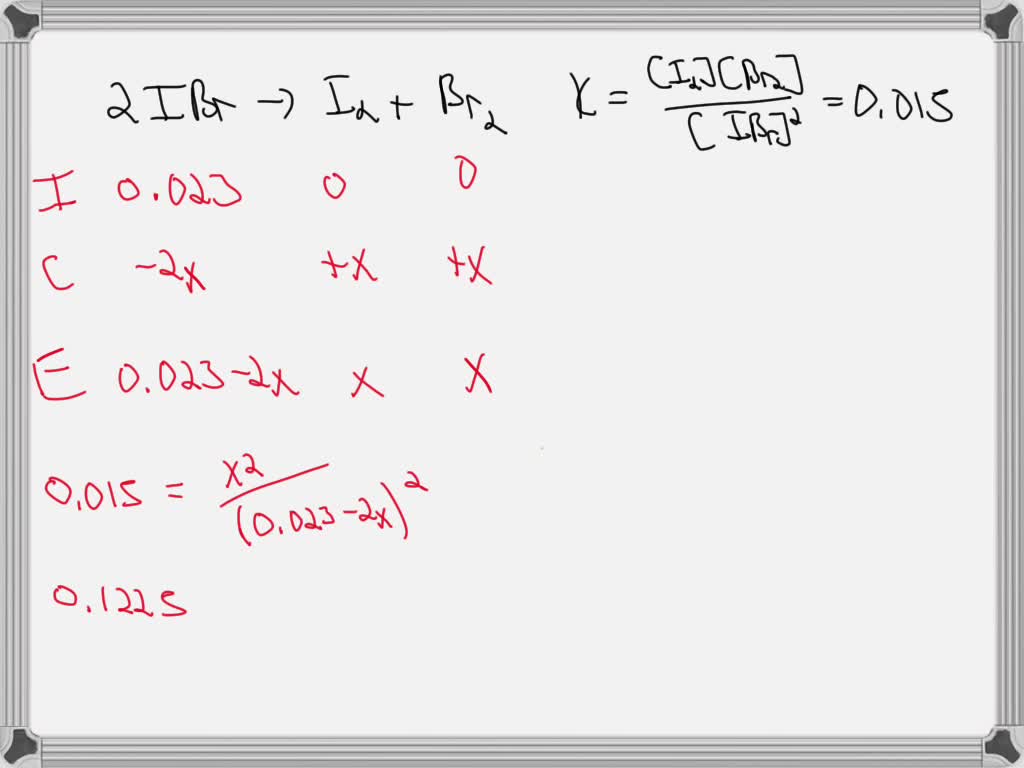 2IBr → I₂ + Br₂ K = [I₂][Br₂] / [IBr]² = 0.015
I 0.023 0 0
C -2x +x +x
E 0.023-2x x x
0.015 = x² / (0.023-2x)²
0.1225